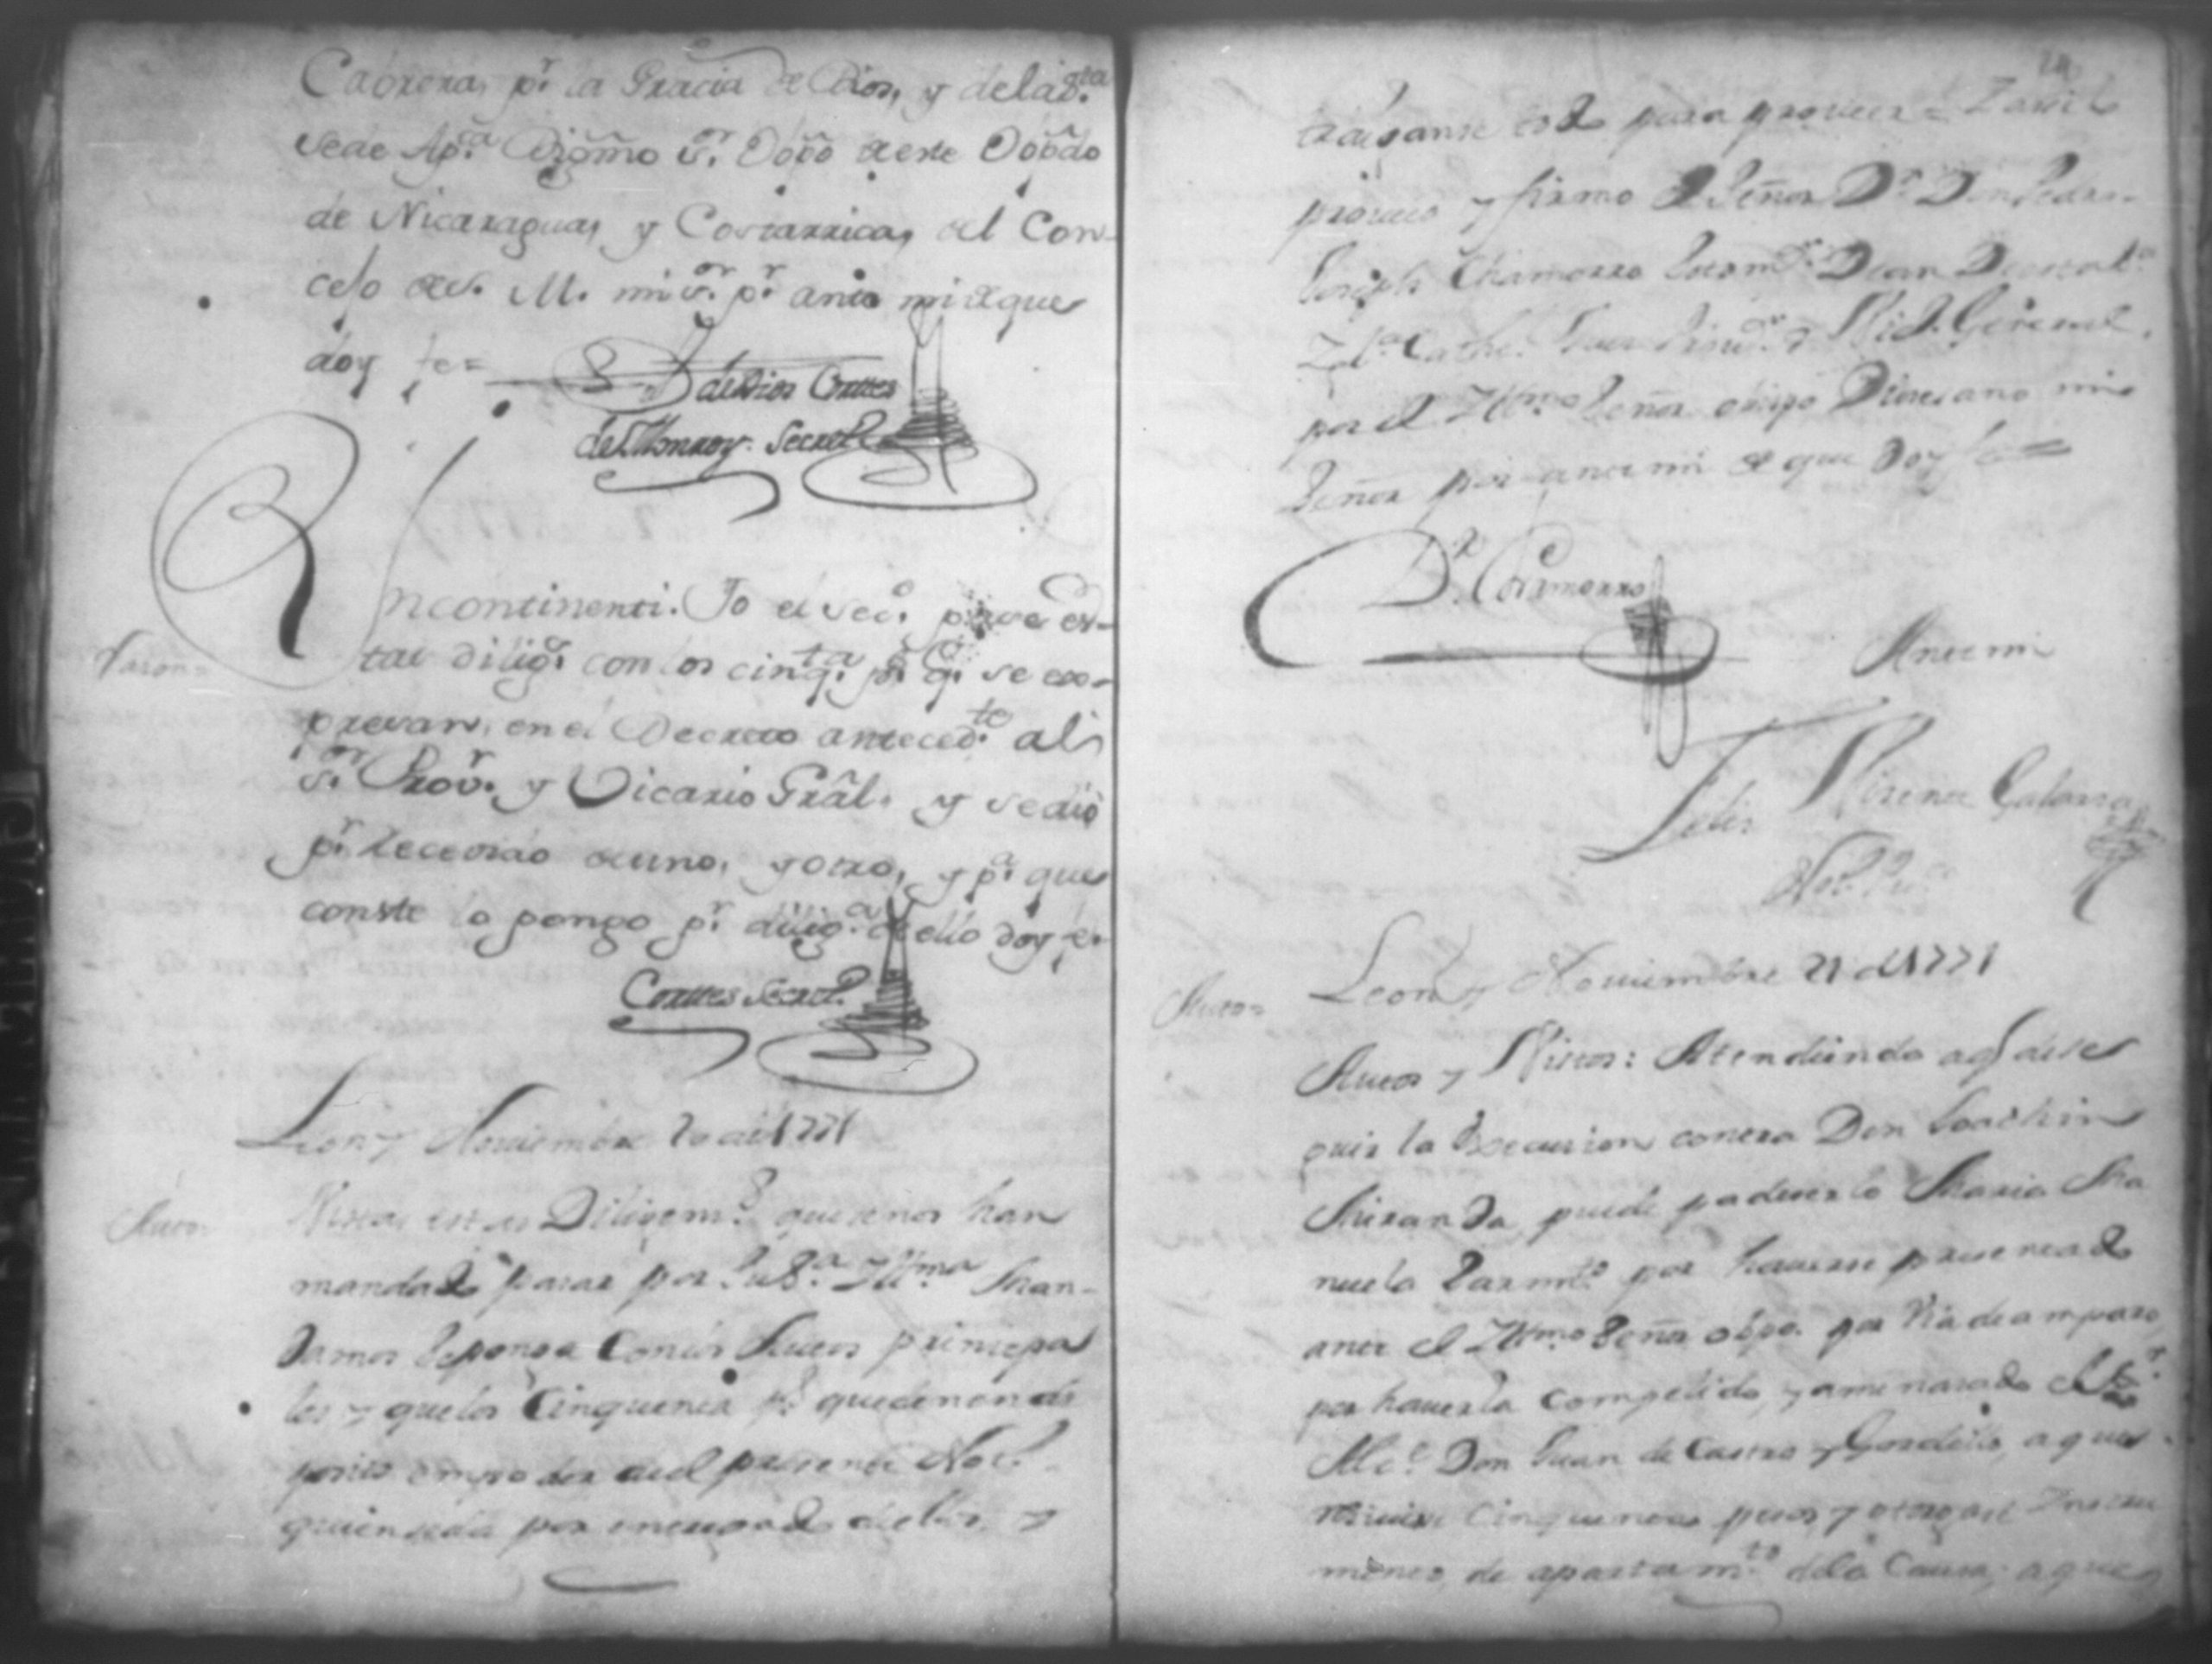 Cabrera, pr. la Gracia de Dios, y dela Sta.
Sede Apca. Digmo. Sr. Obpo de este Obpdo
de Nicaragua, y Costarrica, del Con-
cejo de S. M. mi Sr. pr. ante mi de que
doy fe=
de Dios Corttes
del Monrroy. Secreto.
Incontinenti. Yo el Seco. pase es-
tas diligs. con los cinqta. ps. q. se ex-
Razon=
presan, en el Decreto anteced.te al
Sr. Prov.r y Vicario Grâl. y se dió
pr. recevido de uno, y otro, y pa. que
conste lo pongo pr. diliga. de ello doy fe=
Corttes Secreto.
Leon y Noviembre 20 de 1771
Auto=
Vistas estas Diligens. que se nos han
mandado pasar por Su Sa. Illma. Man-
damos se ponga con los Autos principa
les y que los Cinquenta ps. queden en de
posito en poder del presente Noto.
quien se da por entregado de ellos y
traiganse todo para proveer= Y asi lo
proveio y firmo el Señor Dr. Don Pedro
Joseph Chamorro Sotom.r Dean de esta Sta.
Yglª Cathe. Juez Provr. y Vic. General
por el Illmo Señor obispo Diocesano mi
Señor por ante mi de que doy fe=
Dr. Chamorro
Ante mi
Felis Mirena Galarza
Noto. Puco.
Leon y Noviembre 21 de 1771
Autos=
Autos y Vistos: Atendiendo a q. de se
guir la Execucion contra Don Joachin
Miranda puede padeserlo Maria Ma
nuela Sarmto. por haverse presentado
ante el Illmo Señor obpo. por Via de amparo,
por haverla compelido, y aminasado el Sr.
Alce. Don Juan de Castro y Gordillo, a que
reciviese Cinquenta pesos y otorgase Instru
mento de apartamto. de la Causa; a que